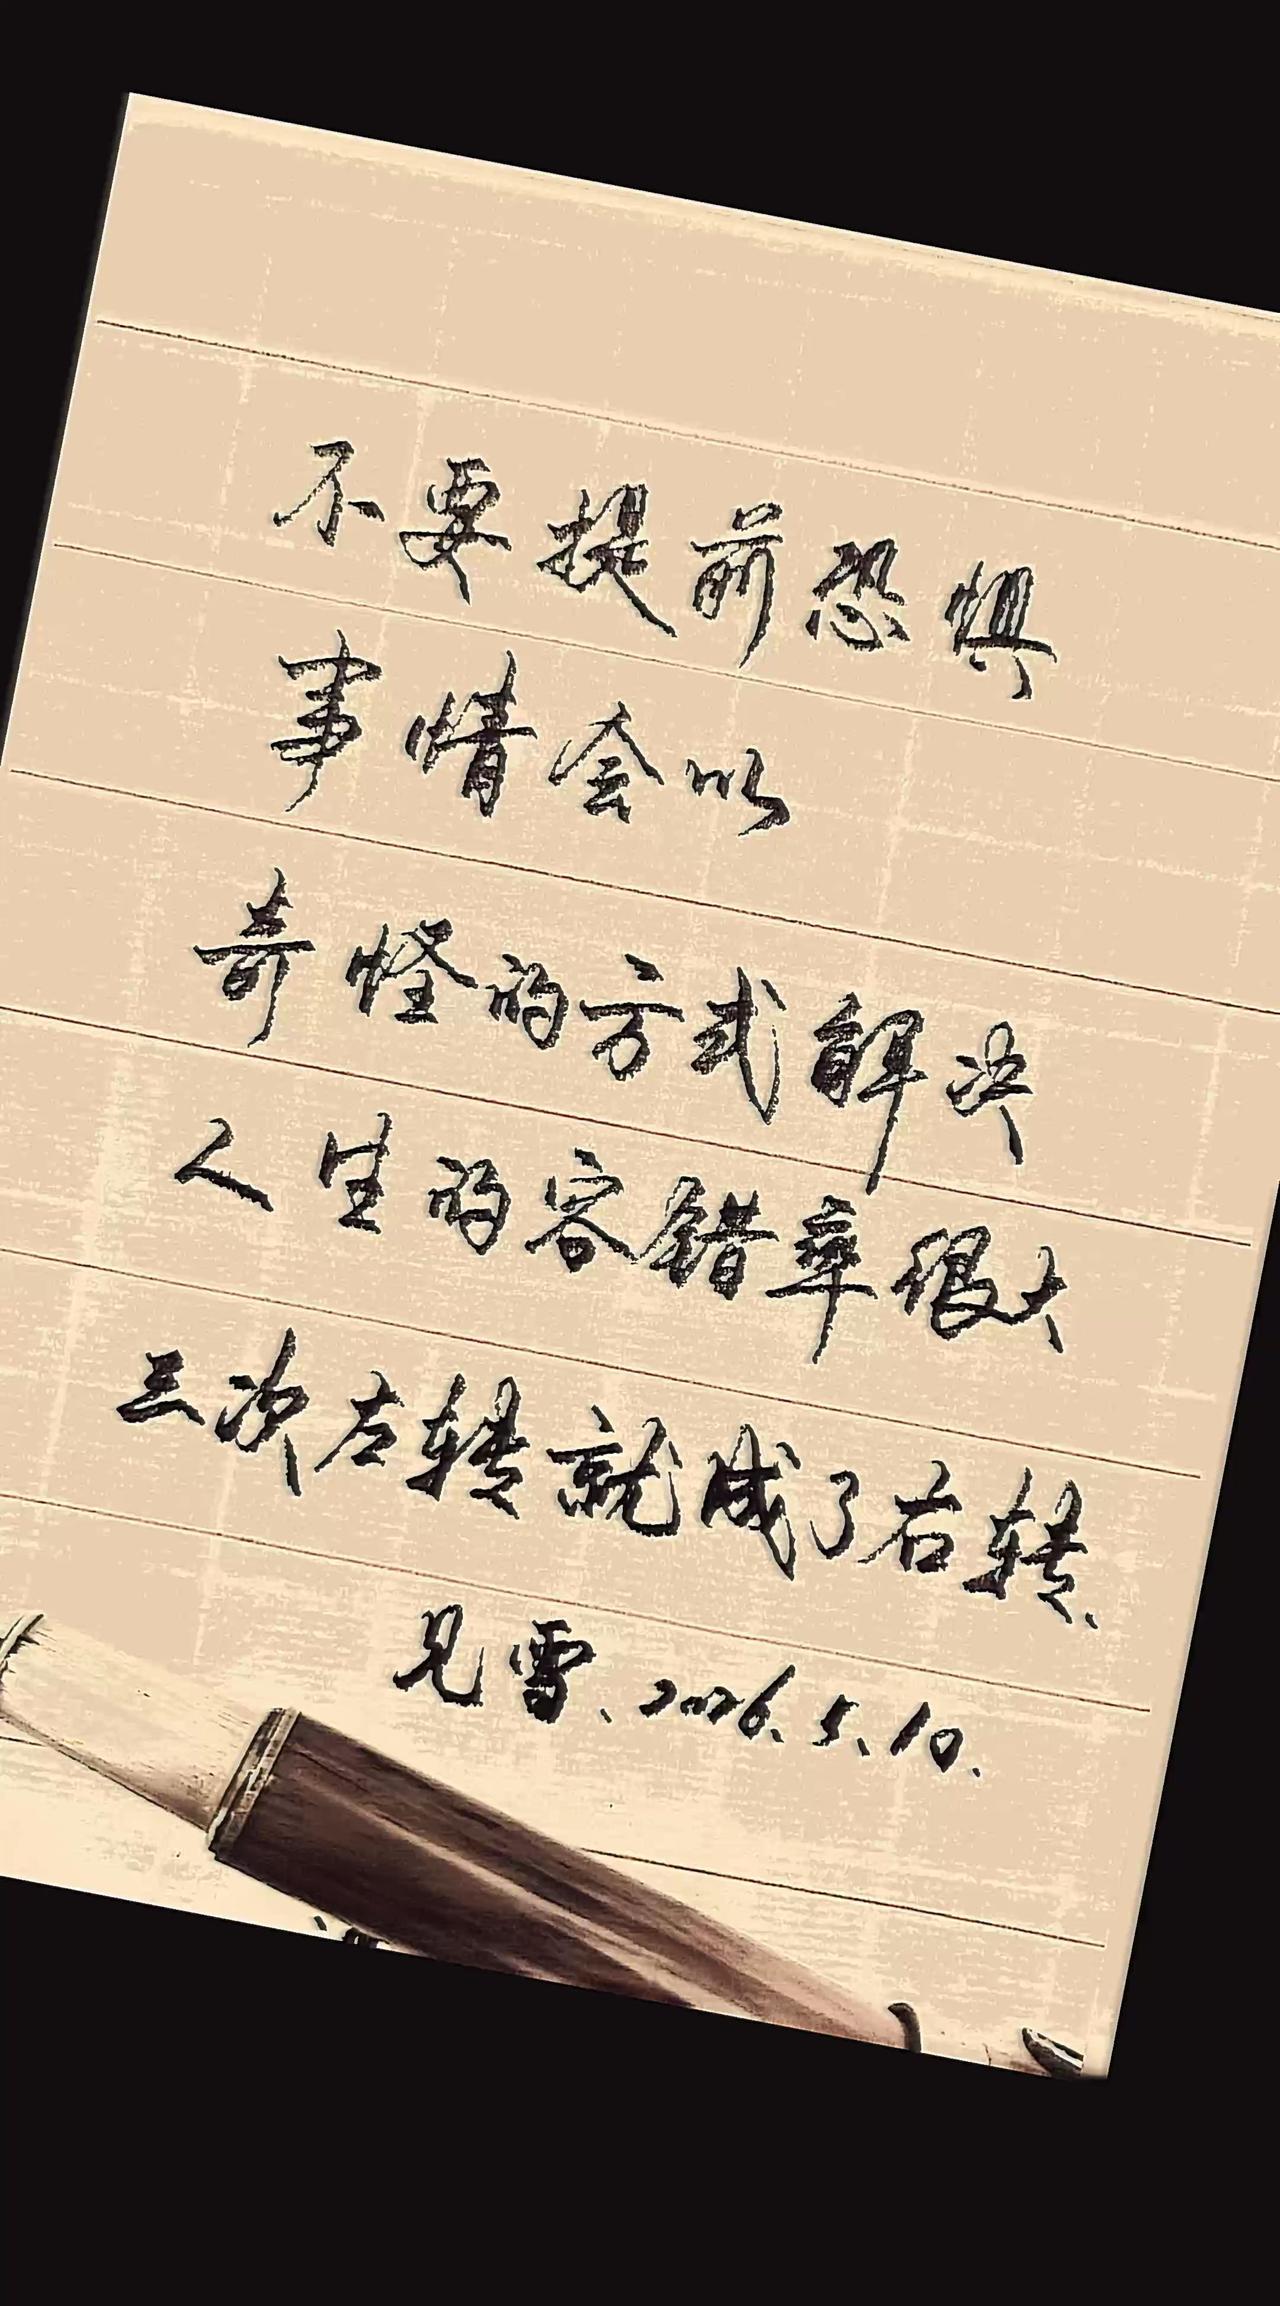 不要提前恐惧
事情会以
奇怪的方式解决
人生的容错率很大
三次左转就成了右转、
见雪、2026.5.10.